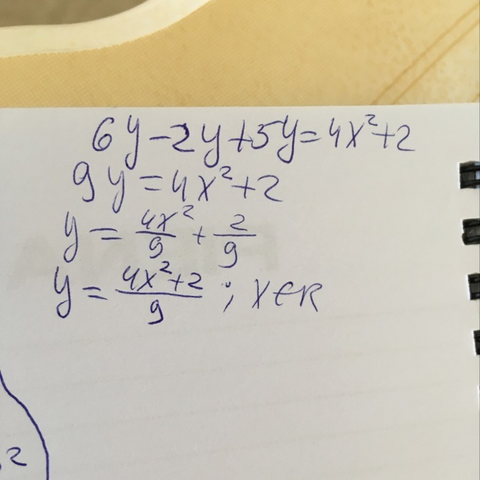 6y-2y+5y=4x²+2
9y=4x²+2
y=4x²/9+2/9
y=(4x²+2)/9; x∈R
2